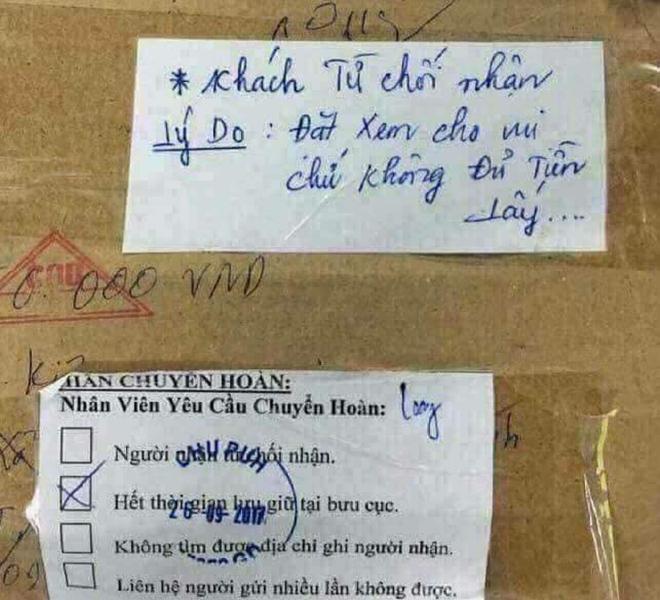 * Khách Từ chối nhận
Lý Do : Đặt xem cho vui
chứ không Đủ Tiền
Lấy....
000 VNĐ
CHUYỂN HOÀN:
Nhân Viên Yêu Cầu Chuyển Hoàn: long
Người nhận từ chối nhận.
Hết thời gian lưu giữ tại bưu cục.
26-09-2017
Không tìm được địa chỉ ghi người nhận.
Liên hệ người gửi nhiều lần không được.